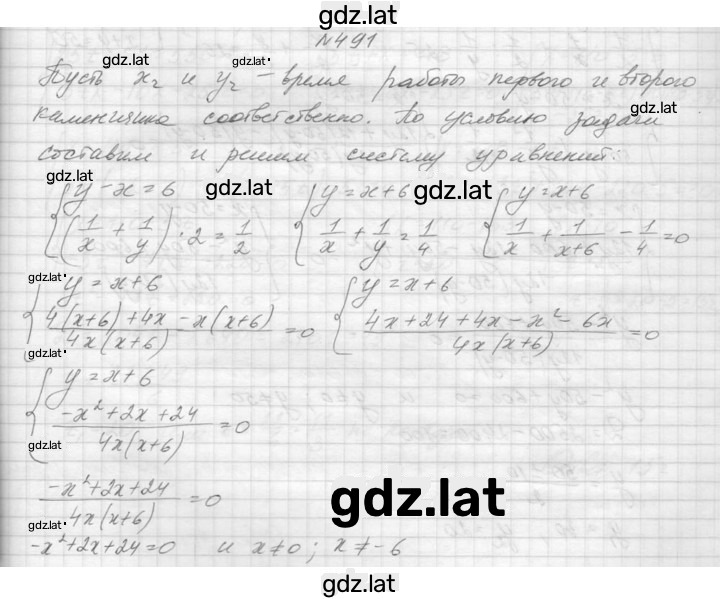 gdz.lat
№491
gdz.lat
gdz.lat
Пусть x₂ и y₂ – время работы первого и второго
gdz.lat
каменщика соответственно. По условию задачи
составим и решим систему уравнений:
gdz.lat gdz.lat gdz.lat
{ y-x=6 { y=x+6 { y=x+6
(1/x + 1/y)·2=1/2 1/x + 1/y = 1/4 1/x + 1/(x+6) - 1/4=0
gdz.lat
{ y=x+6 { y=x+6
(4(x+6)+4x-x(x+6))/(4x(x+6)) =0 (4x+24+4x-x²-6x)/(4x(x+6)) =0
gdz.lat
{ y=x+6
(-x²+2x+24)/(4x(x+6)) =0
gdz.lat
(-x²+2x+24)/(4x(x+6)) =0
gdz.lat
gdz.lat
-x²+2x+24=0 и x≠0; x≠-6
gdz.lat